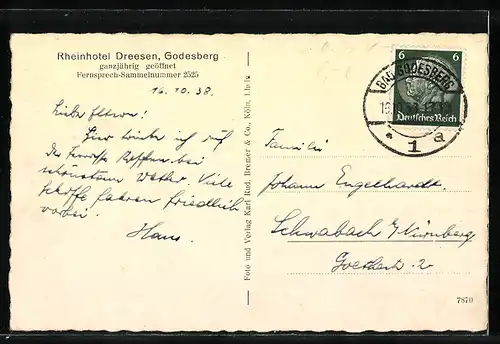 Rheinhotel Dreesen, Godesberg
ganzjährig geöffnet
Fernsprech-Sammelnummer 2525
16.10.38.
Liebe Eltern!
Hier trinke ich auf
der Terrasse Kaffee bei
schönstem Wetter. Viele
Schiffe fahren friedlich
vorbei.
Hans.
Foto und Verlag Karl Rud. Bremer & Co., Köln
6 6
Deutsches Reich
BAD GODESBERG
1 a
Familie
Johann Engelhardt
Schwabach b/Nürnberg
2
7870